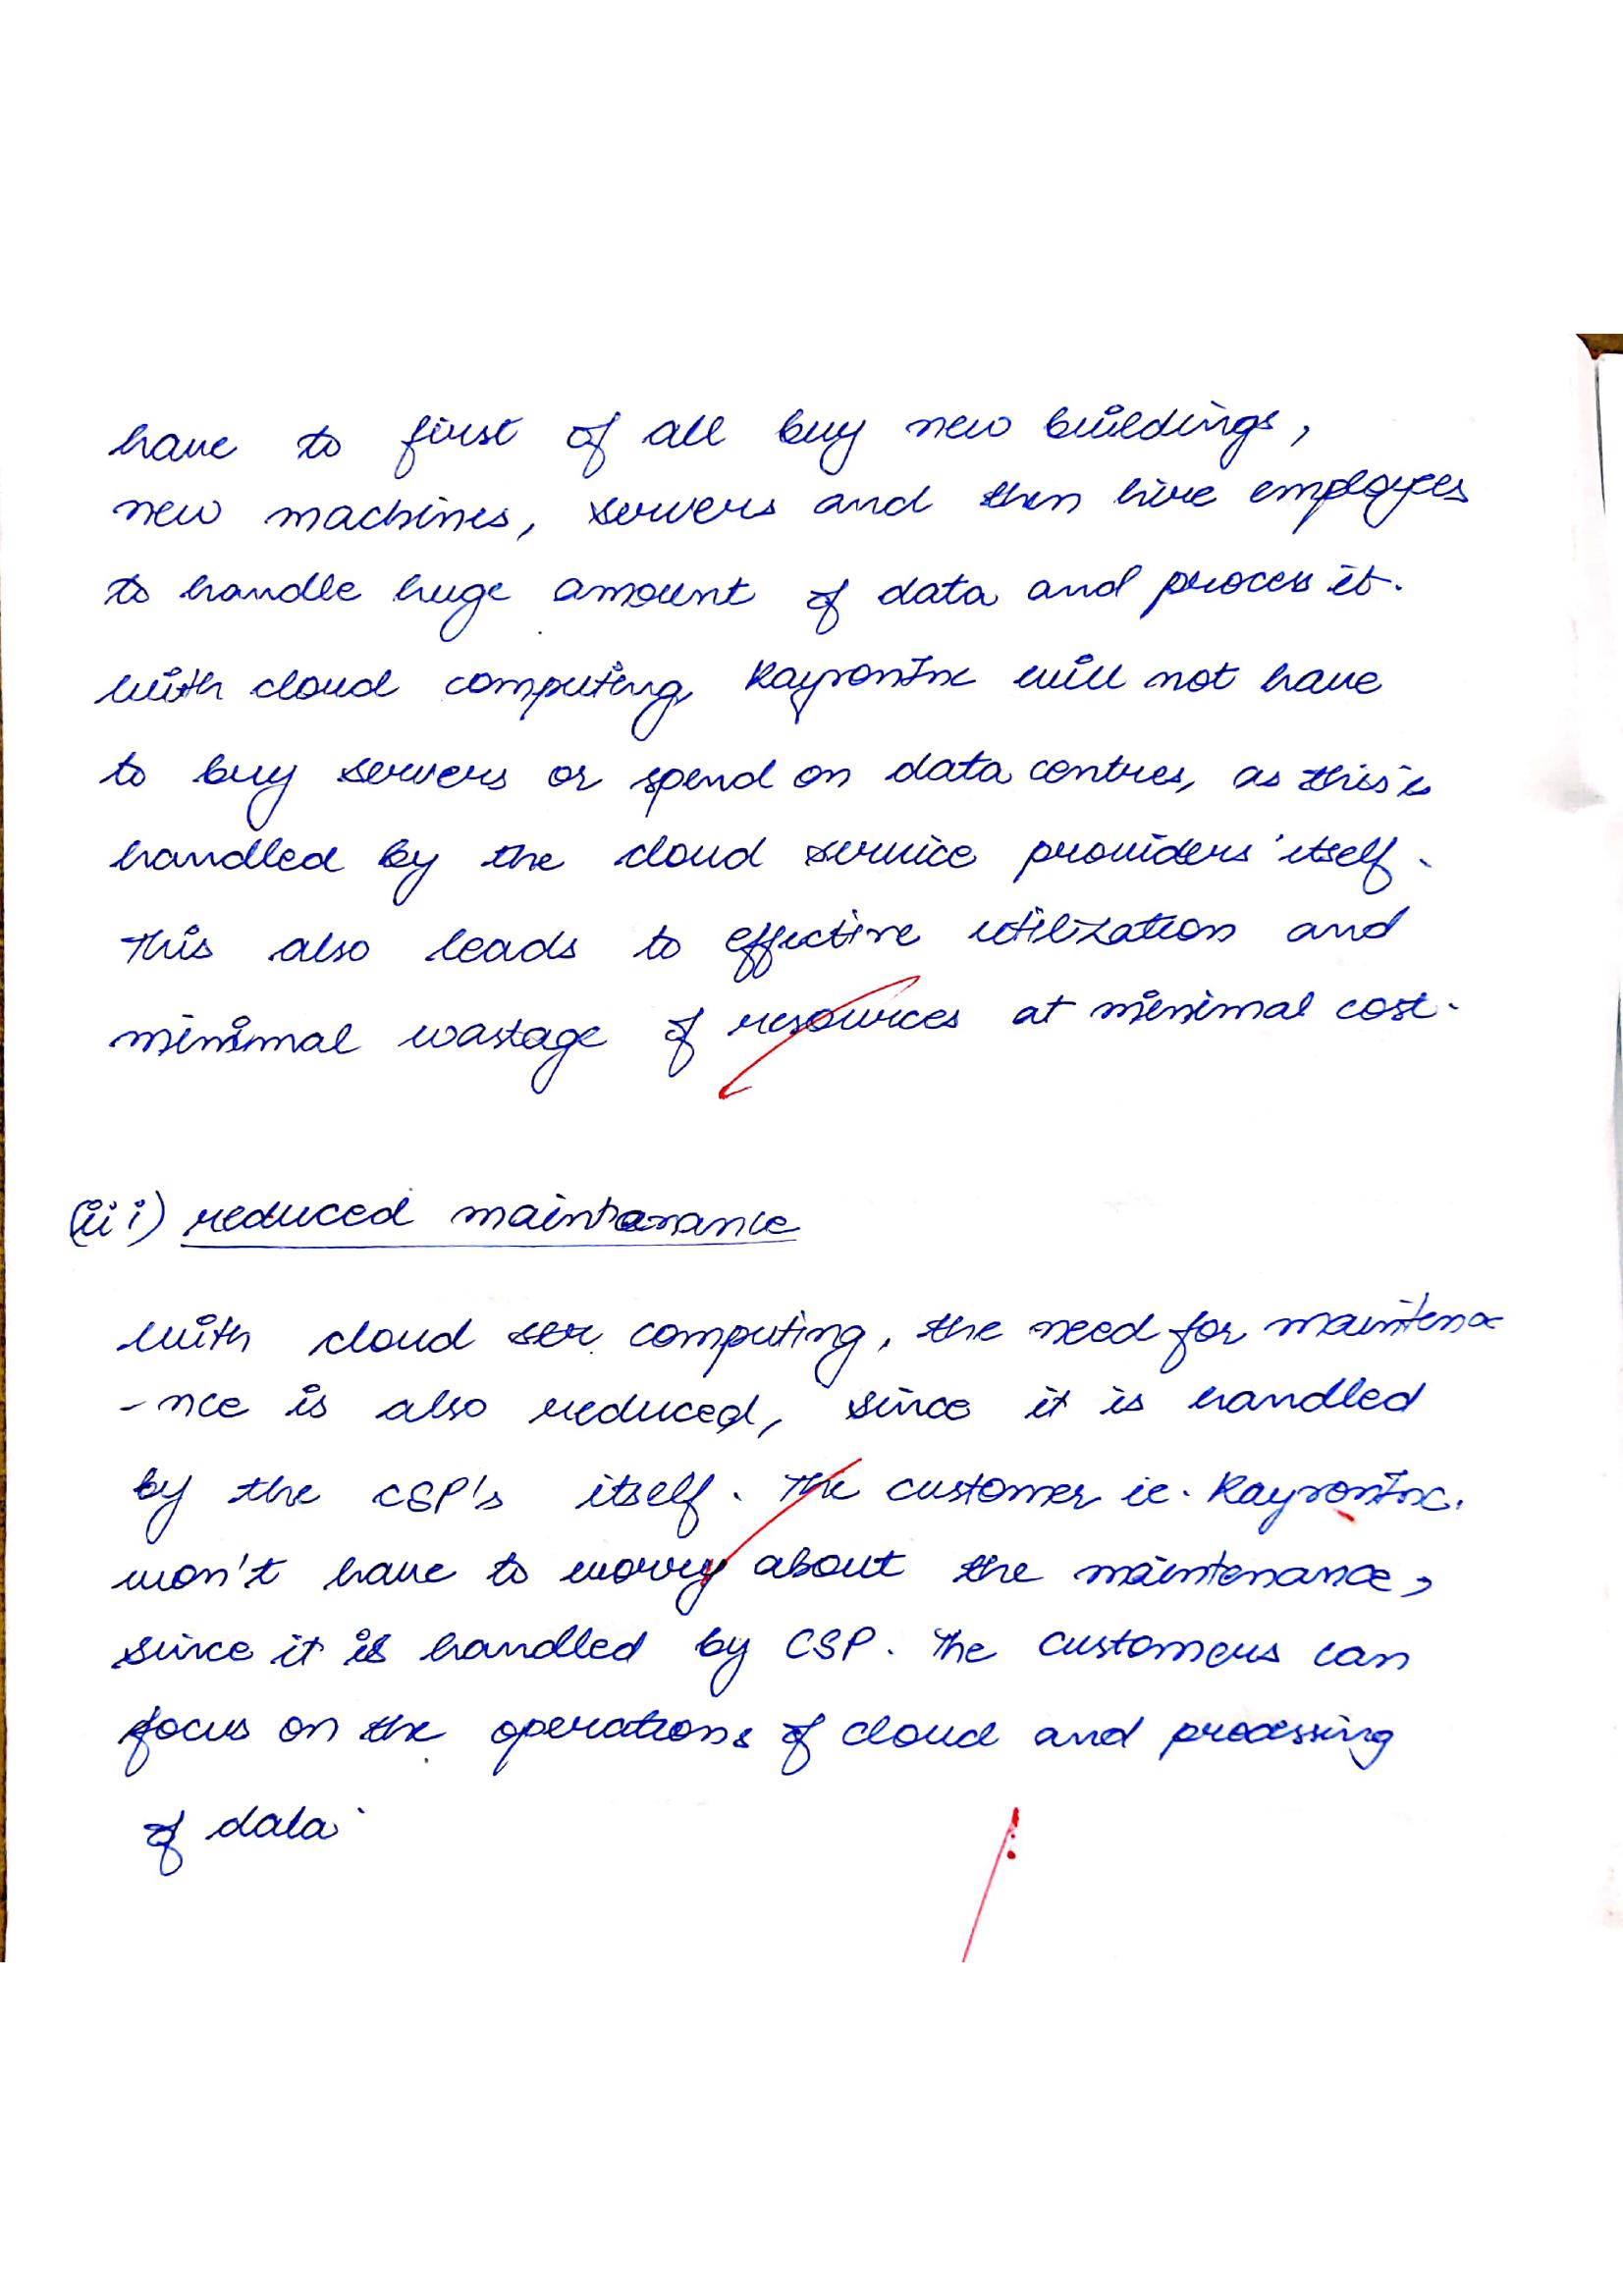 have to first of all buy new buildings,
new machines, servers and then hire employees
to handle huge amount of data and process it.
with cloud computing RayronInc will not have
to buy servers or spend on data centres, as this is
handled by the cloud service providers itself.
This also leads to effective utilization and
minimal wastage of resources at minimal cost.
(iii) reduced maintanance
with cloud ser computing, the need for maintena
-nce is also reduced, since it is handled
by the CSP's itself. The customer ie. RayronInc.
won't have to worry about the maintenance,
since it is handled by CSP. The customers can
focus on the operations of cloud and processing
of data.